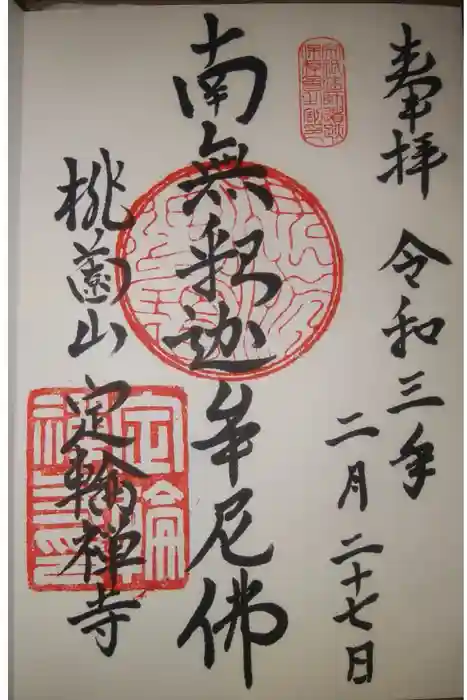 奉拝 令和三年
二月二十七日
南無釈迦牟尼佛
桃薗山 定輪禅寺